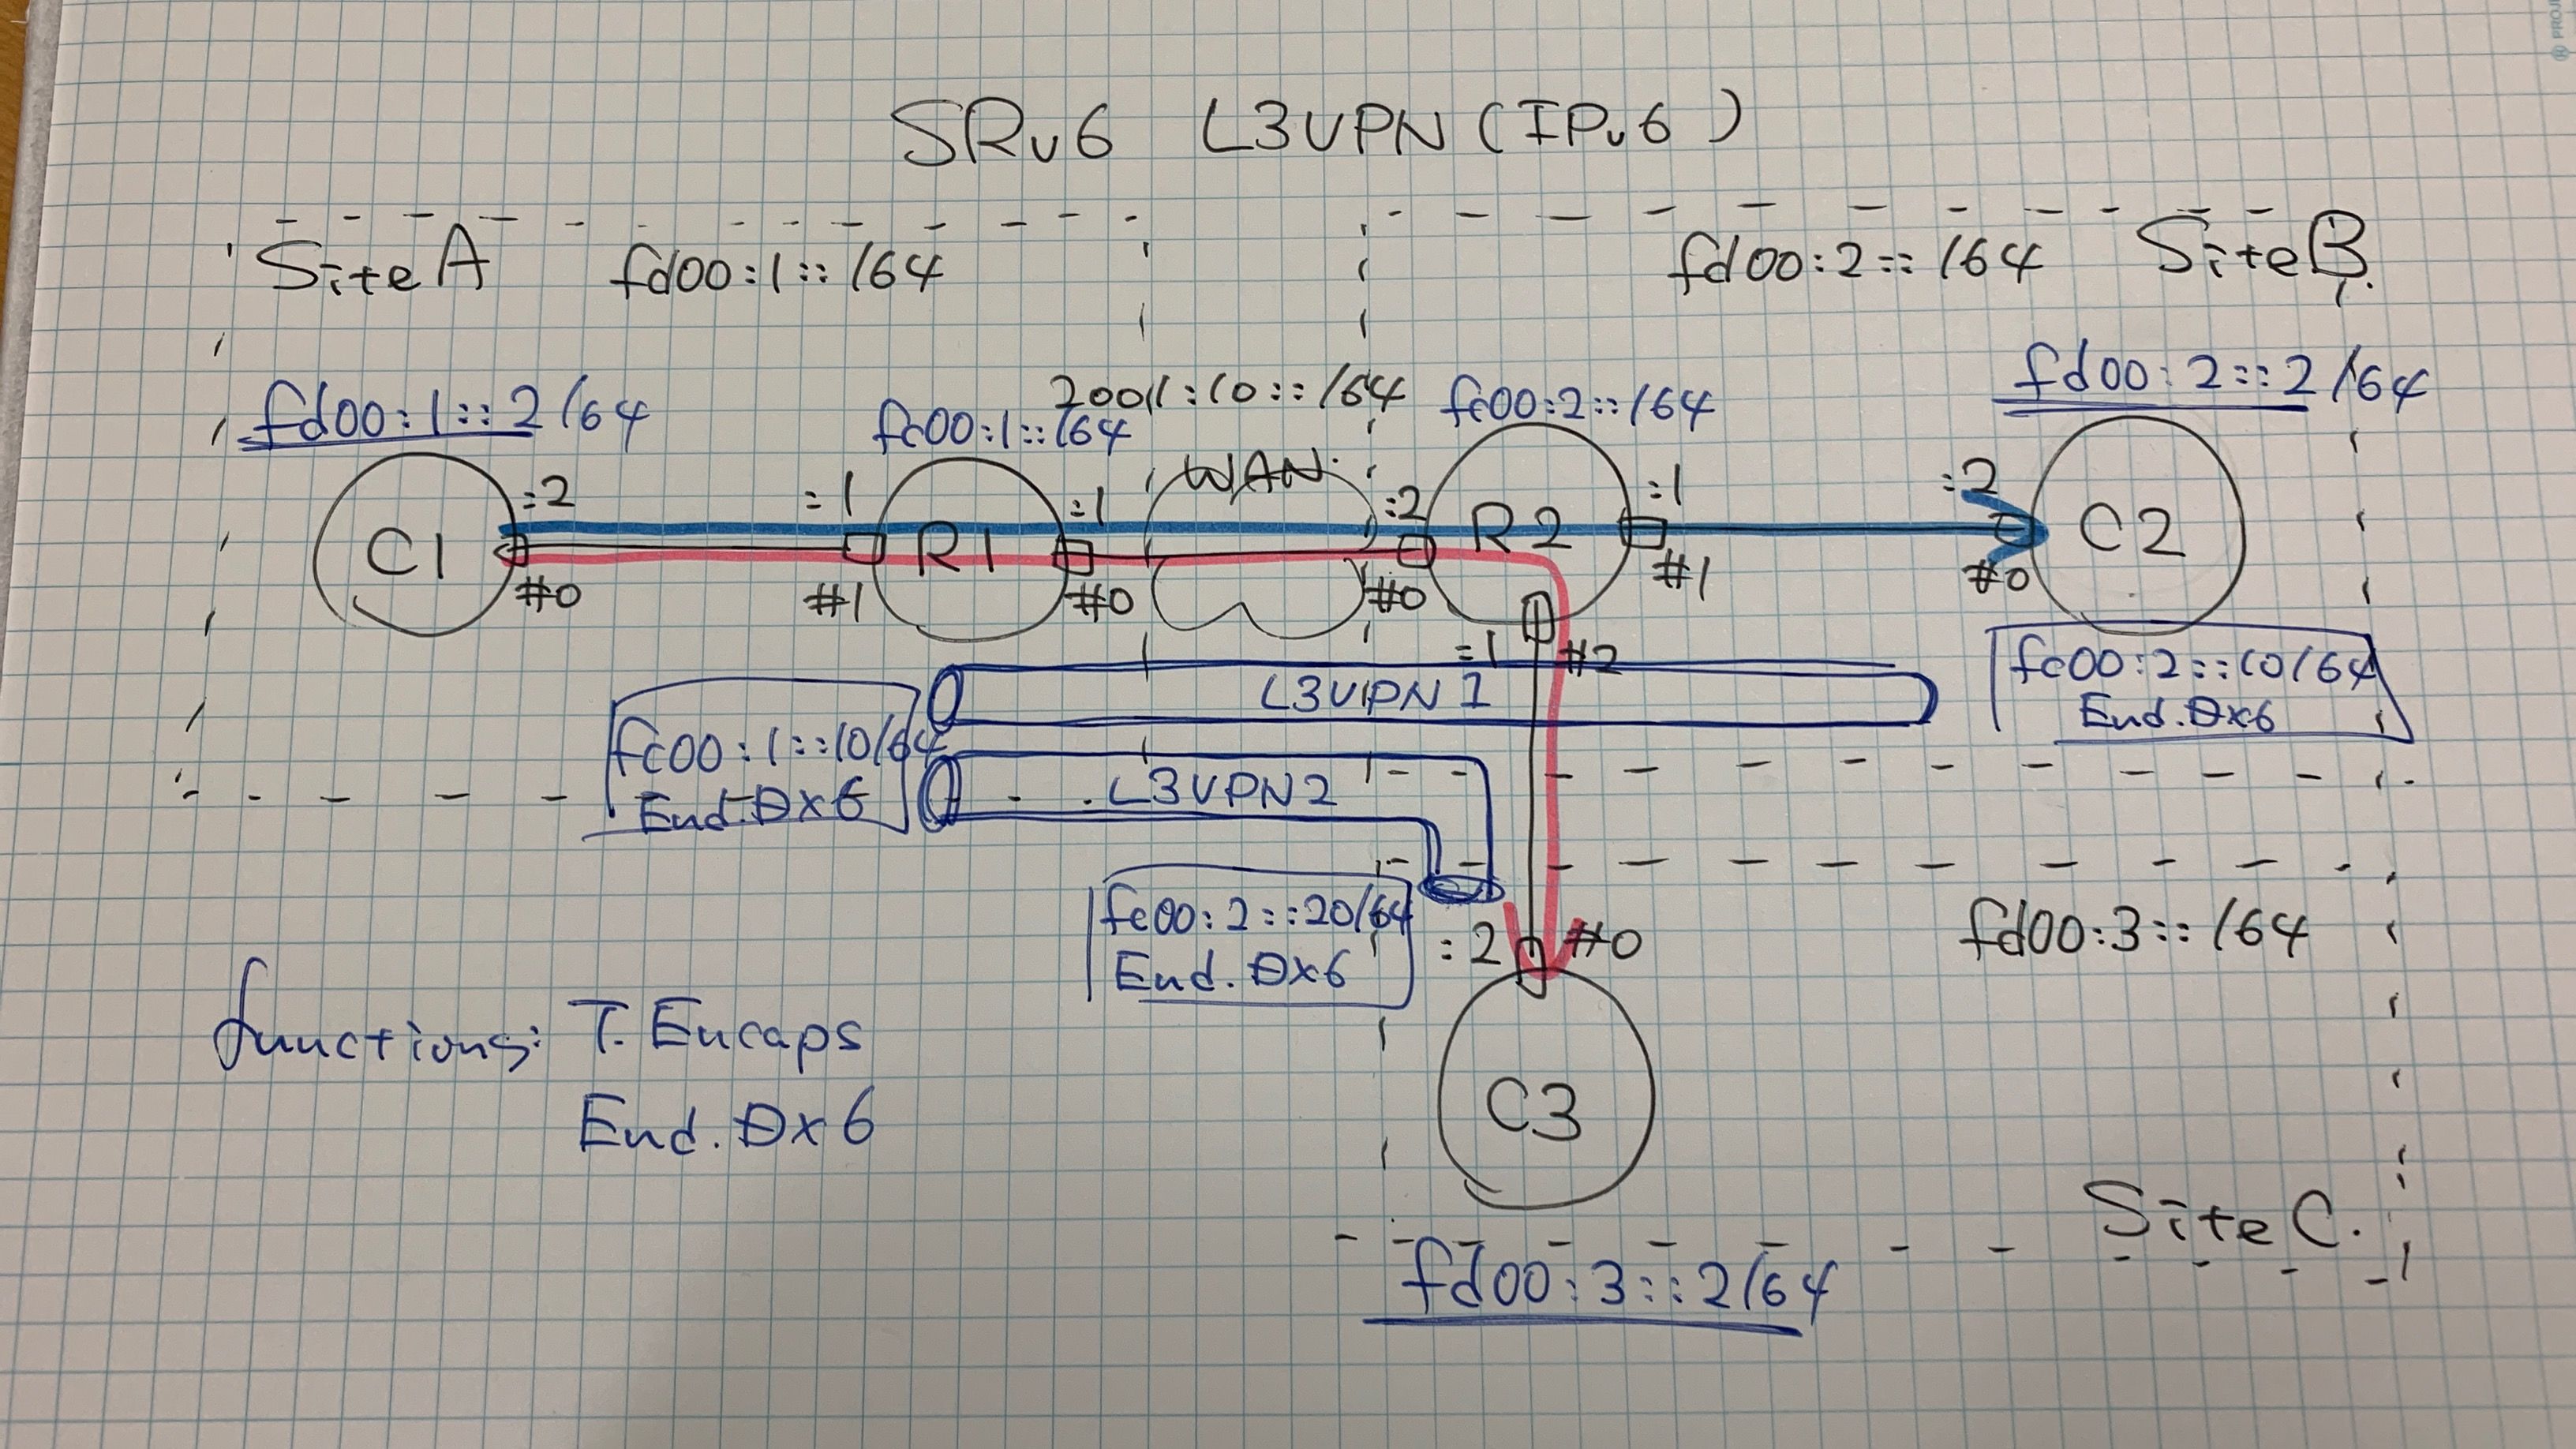 SRv6 L3VPN (IPv6)
SiteA fd00:1::/64
fd00:2::/64 SiteB.
fd00:1::2/64
fc00:1::/64
2001:10::/64
fc00:2::/64
fd00:2::2/64
WAN
:2 :1 :1 :2 :1 :2
C1 R1 R2 C2
#0 #1 #0 #0 #1 #0
:1 #2
L3VPN 1
fc00:2::10/64
End.DX6
fc00:1::10/64
End.DX6
L3VPN2
fc00:2::20/64
End.DX6
:2 #0
fd00:3::/64
C3
functions: T.Encaps
End.DX6
SiteC.
fd00:3::2/64